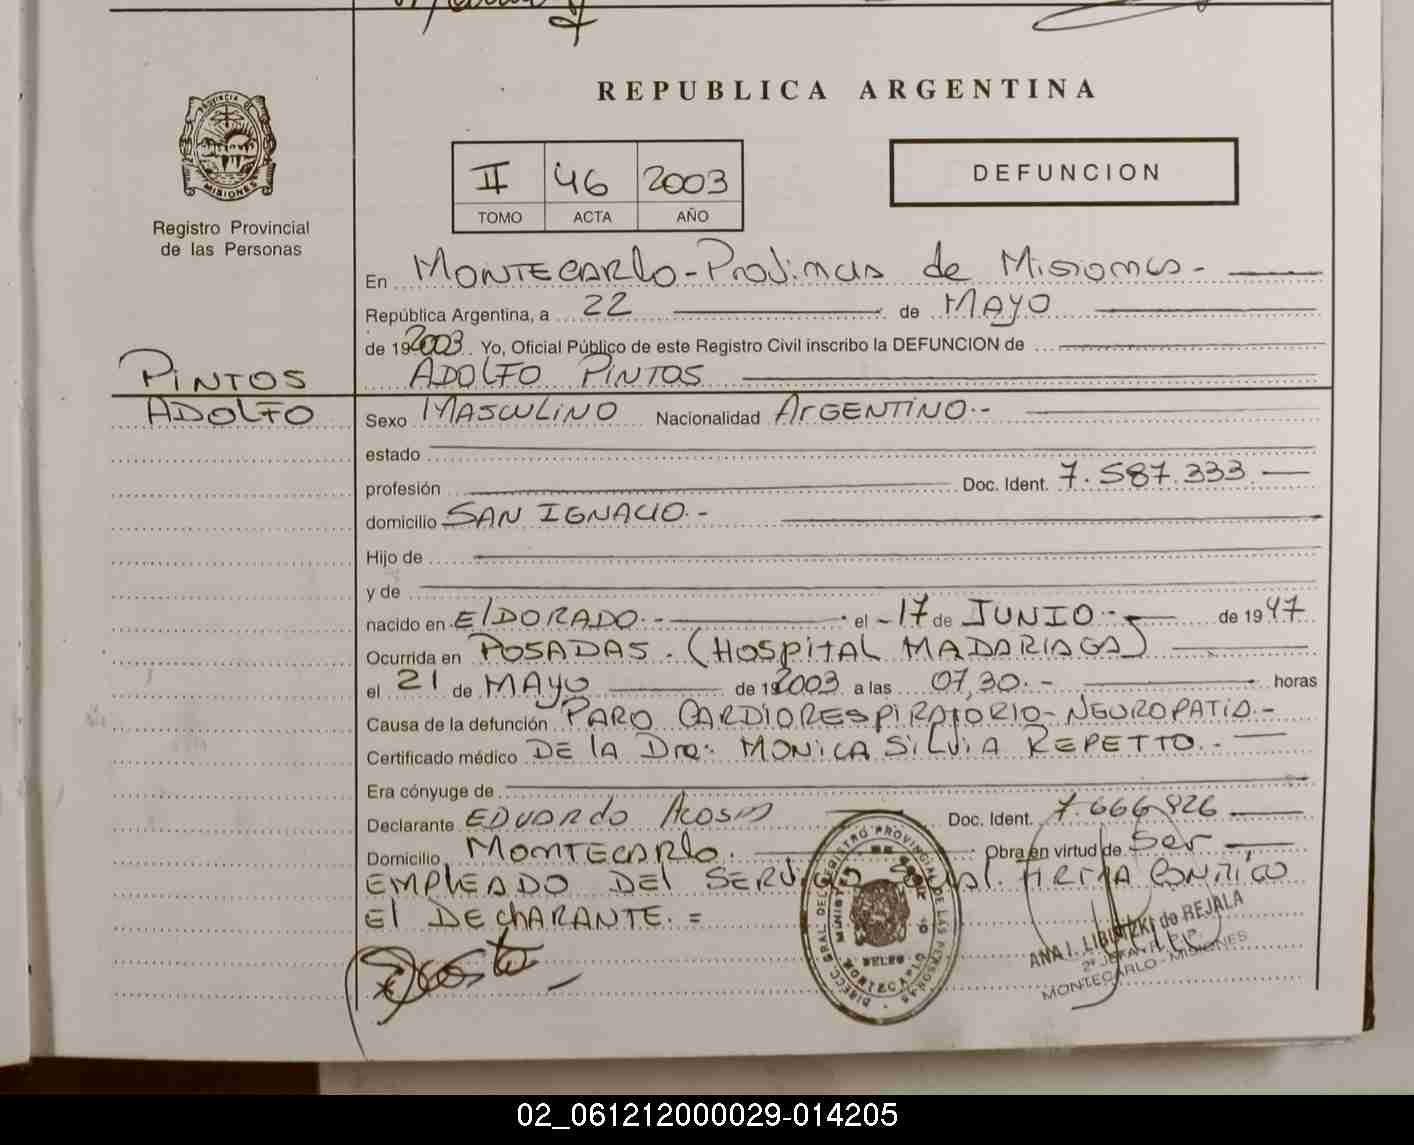 REPUBLICA ARGENTINA
PROVINCIA DE
MISIONES
Registro Provincial
de las Personas
II 46 2003
TOMO ACTA AÑO
DEFUNCION
En MONTECARLO - Provincia de Misiones -
República Argentina, a 22 de MAYO
de 192003. Yo, Oficial Público de este Registro Civil inscribo la DEFUNCION de
ADOLFO PINTOS
PINTOS
ADOLFO
Sexo MASCULINO Nacionalidad ARGENTINO.-
estado
profesión Doc. Ident. 7.587.333
domicilio SAN IGNACIO.-
Hijo de
y de
nacido en ElDORADO.- el -17 de JUNIO.- de 1947
Ocurrida en POSADAS. (HOSPITAL MADARIAGA)
el 21 de MAYO de 192003 a las 07,30.- horas
Causa de la defunción PARO CARDIORESPIRATORIO - NEUROPATIA.-
Certificado médico DE la Dra. MONICA SILVIA REPETTO.-
Era cónyuge de
Declarante EDUARDO Acosta Doc. Ident. 7.666.926
Domicilio MONTECARLO. Obra en virtud de Ser
EMPLEADO DEL SERVICIO Social. FIRMA CONMIGO
El DECHARANTE. =
Acosta
DIRECC. GRAL. DE REGISTRO PROVINCIAL DE LAS PERSONAS
MONTECARLO
ANA I. LIBUTZKI de REJALA
MONTECARLO - MISIONES
02_061212000029-014205